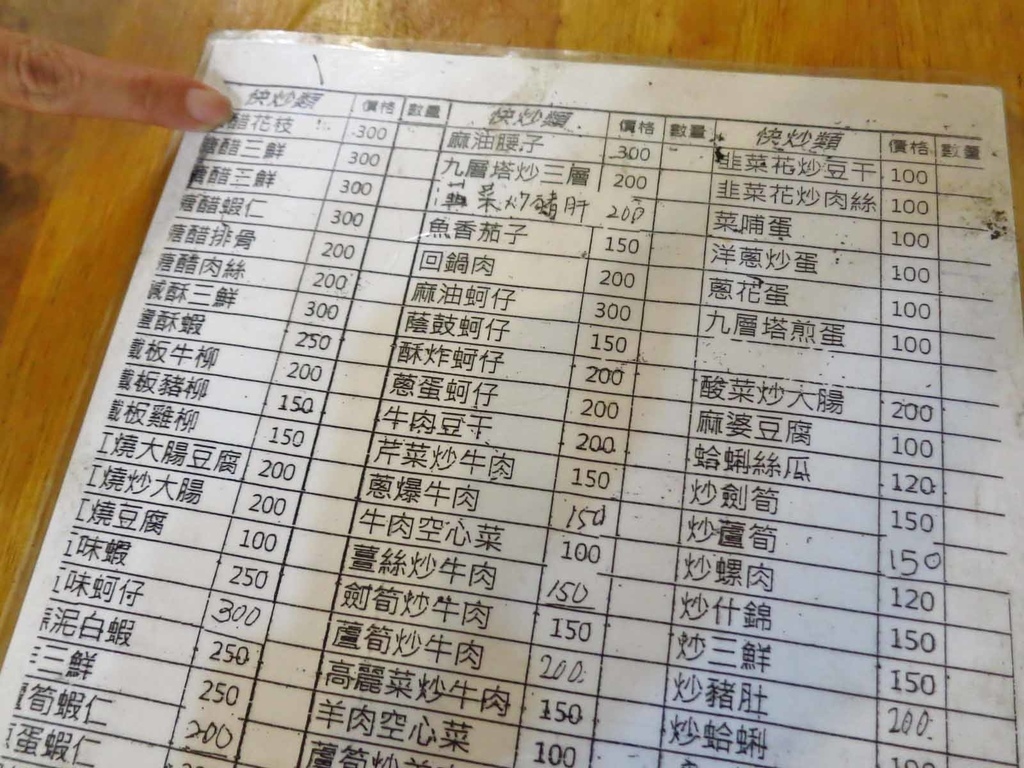 快炒類 價格 數量
醋花枝 300
糖醋三鮮 300
糖醋三鮮 300
糖醋蝦仁 300
糖醋排骨 200
糖醋肉絲 200
鹹酥三鮮 300
鹽酥蝦 250
鐵板牛柳 200
鐵板豬柳 150
鐵板雞柳 150
燒大腸豆腐 200
燒炒大腸 200
燒豆腐 100
味蝦 250
味蚵仔 300
泥白蝦 250
三鮮 250
蘆筍蝦仁 200
蛋蝦仁
快炒類 價格 數量
麻油腰子 300
九層塔炒三層 200
韭菜炒豬肝 200
魚香茄子 150
回鍋肉 200
麻油蚵仔 300
蔭鼓蚵仔 150
酥炸蚵仔 200
蔥蛋蚵仔 200
牛肉豆干 200
芹菜炒牛肉 150
蔥爆牛肉 150
牛肉空心菜 100
薑絲炒牛肉 150
劍筍炒牛肉 150
蘆筍炒牛肉 200
高麗菜炒牛肉 150
羊肉空心菜 100
蘆筍炒羊
快炒類 價格 數量
韭菜花炒豆干 100
韭菜花炒肉絲 100
菜哺蛋 100
洋蔥炒蛋 100
蔥花蛋 100
九層塔煎蛋 100
酸菜炒大腸 200
麻婆豆腐 100
蛤蜊絲瓜 120
炒劍筍 150
炒蘆筍 150
炒螺肉 120
炒什錦 150
炒三鮮 150
炒豬肚 200
炒蛤蜊